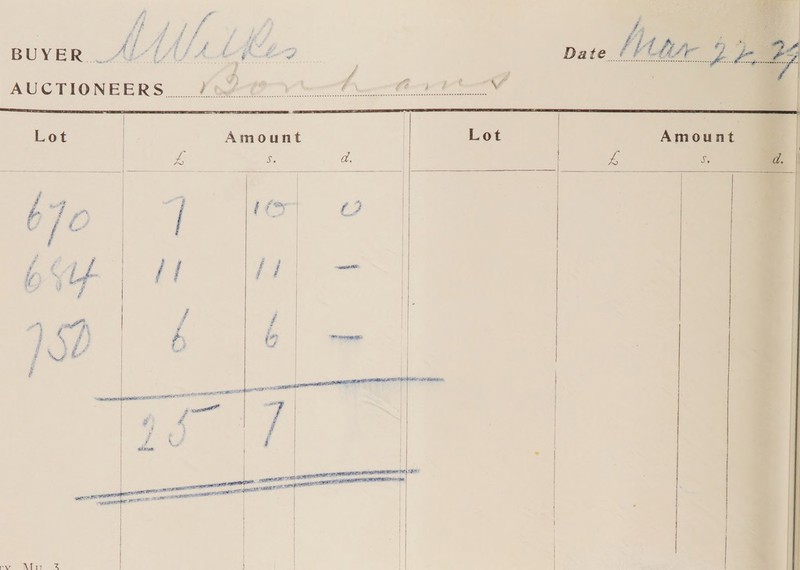 BUYER A Wilkes Date Mar 22, 29
AUCTIONEERS Bonhams
Lot Amount Lot Amount
£ s. d. £ s. d.
670 7 10 0
684 11 11 —
750 6 6 —
25 7